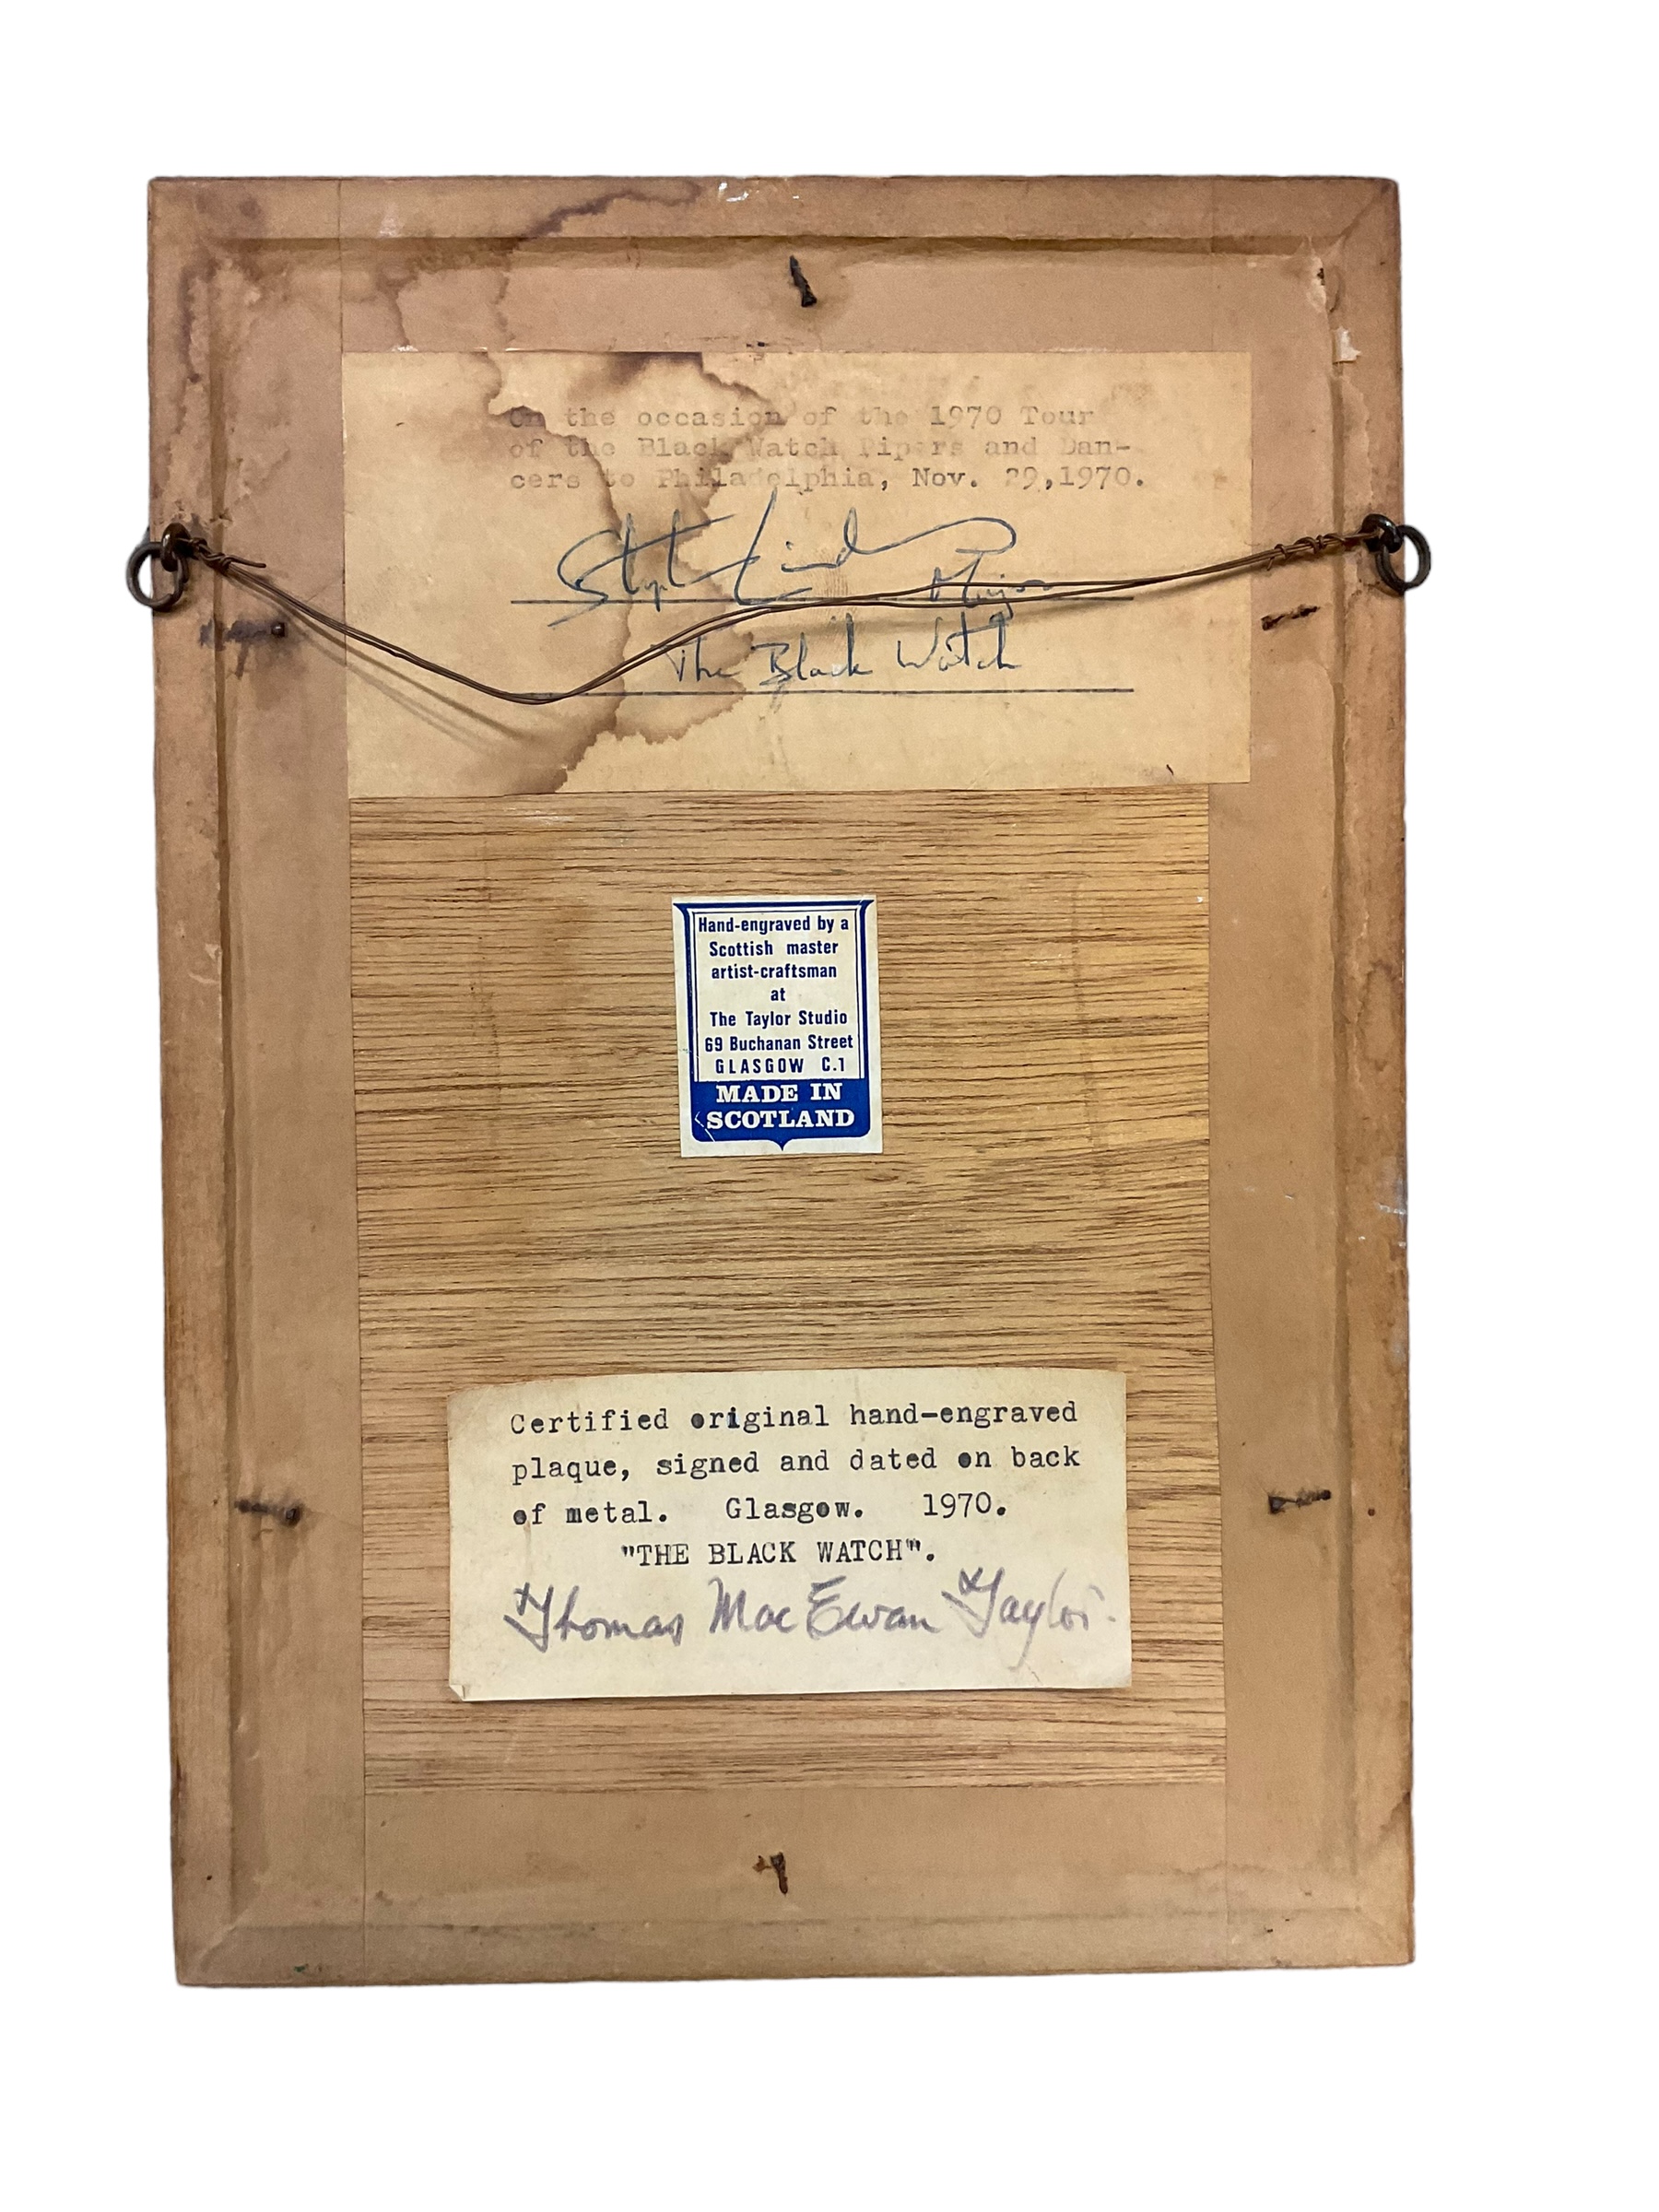 On the occasion of the 1970 Tour
of the Black Watch Pipers and Dan-
cers to Philadelphia, Nov. 29,1970.
Major
The Black Watch
Hand-engraved by a
Scottish master
artist-craftsman
at
The Taylor Studio
69 Buchanan Street
GLASGOW C.1
MADE IN
SCOTLAND
Certified original hand-engraved
plaque, signed and dated on back
of metal. Glasgow. 1970.
"THE BLACK WATCH".
Thomas MacEwan Taylor.